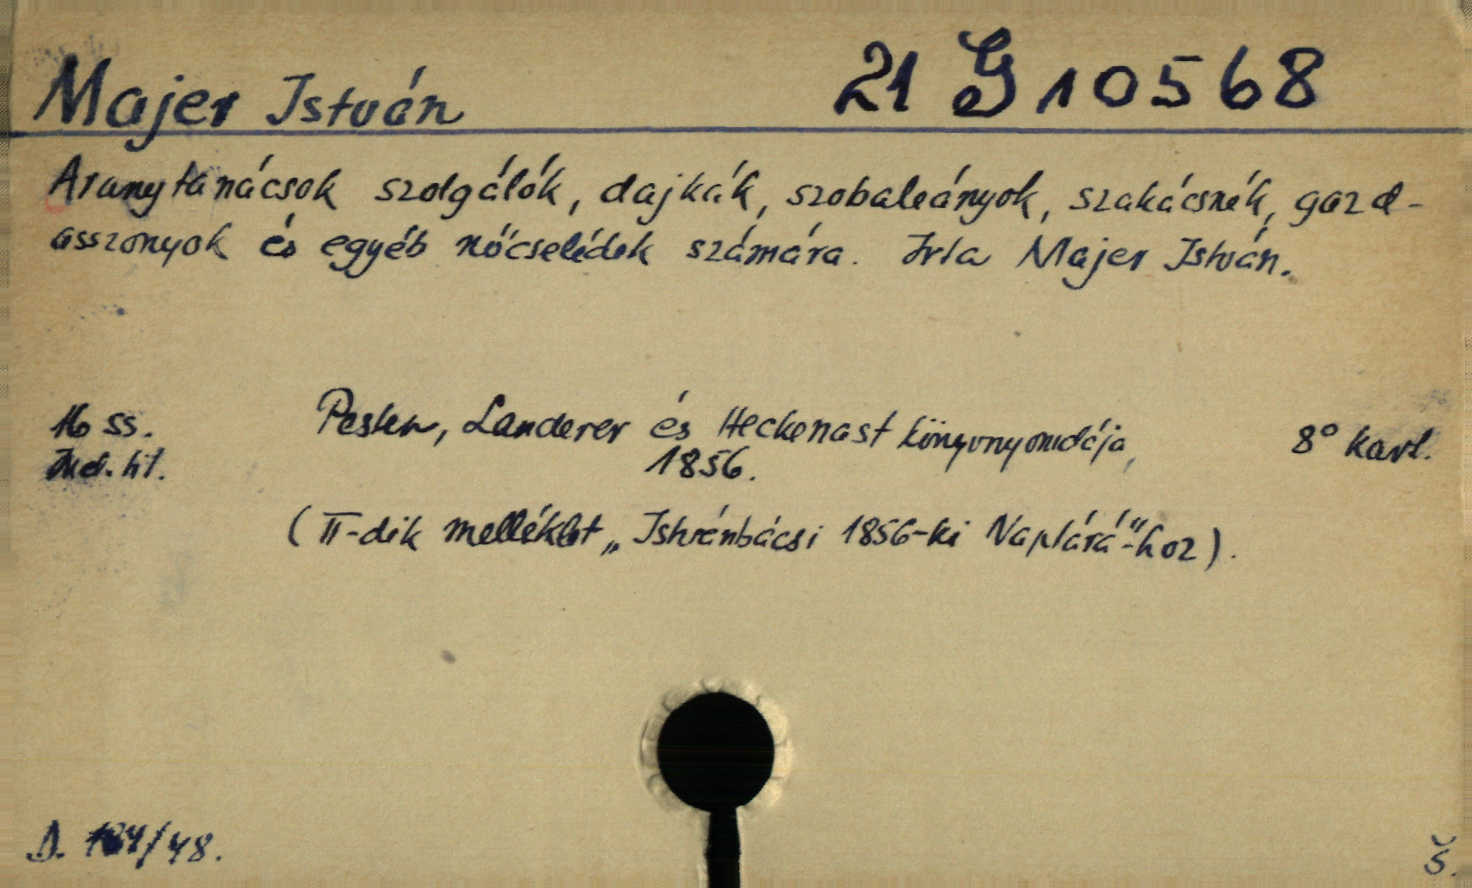 Majer István 21 G 10568
Aranytanácsok szolgálók, dajkák, szobaleányok, szakácsnék, gazd-
asszonyok és egyéb nőcselédek számára. Irta Majer István.
16 ss. Pesten, Landerer és Heckenast könyvnyomdája, 8° kart.
1856.
(II-dik melléklet „Istvánbácsi 1856-ki Naptárá"-hoz).
D. /48. š.